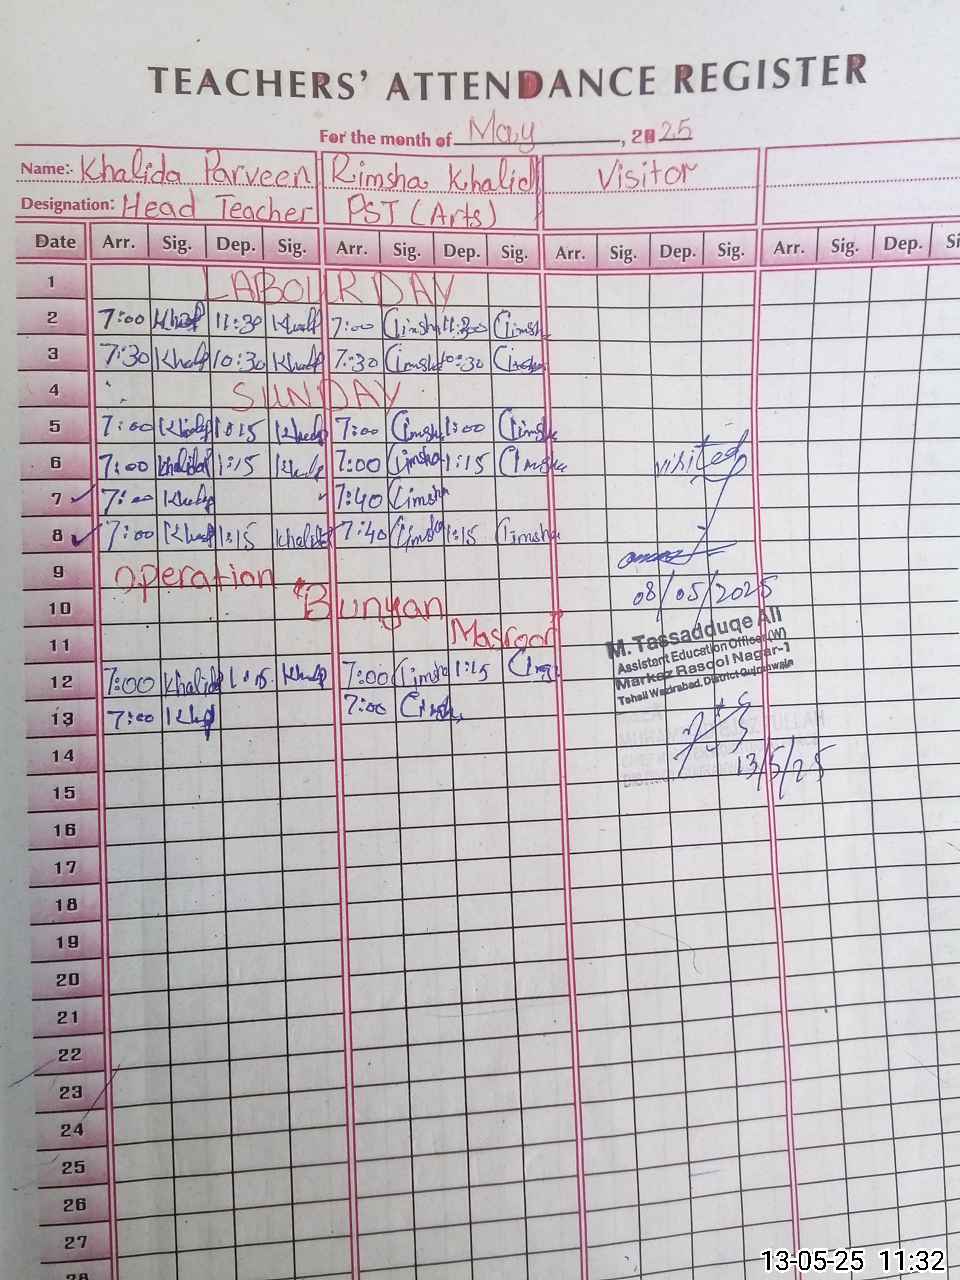 TEACHERS' ATTENDANCE REGISTER
For the month of May, 2025
Name:- Khalida Parveen Rimsha Khalid Visitor
Designation: Head Teacher PST (Arts)
Date Arr. Sig. Dep. Sig. Arr. Sig. Dep. Sig. Arr. Sig. Dep. Sig. Arr. Sig. Dep. Si
1 LABOUR DAY
2 7:00 11:30 7:00 11:30
3 7:30 10:30 7:30 10:30
4 SUNDAY
5 7:00 1:15 7:00 1:00
6 7:00 Khalida 1:15 7:00 1:15 visited
7 7:00 7:40
8 7:00 1:15 Khalida 7:40 1:15
9 Operation
10 "Bunyan 08/05/2025
11 Masroor"
M. Tassadduqe Ali
Assistant Education Officer (W)
Markaz Rasool Nagar-1
Tehsil Wazirabad, District Gujranwala
12 7:00 Khalida 1:15 7:00 1:15
13 7:00 7:00
14 13/5/25
15
16
17
18
19
20
21
22
23
24
25
26
27
28
13-05-25 11:32